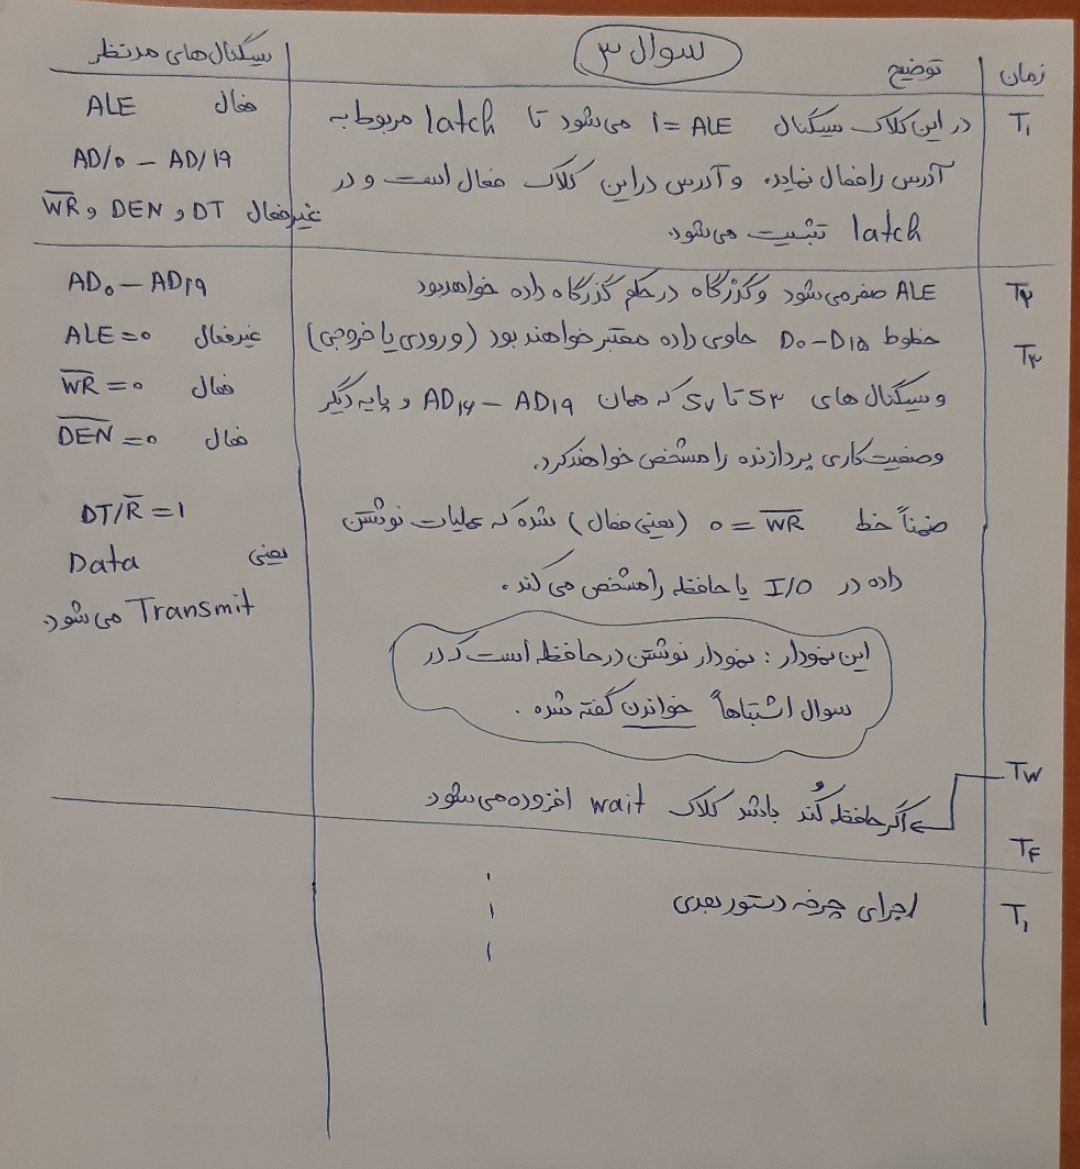 سوال ۳
زمان
توضیح
سیگنال‌های مدنظر
T۱
در این کلاک سیگنال ALE = ۱ می‌شود تا latch مربوط به
آدرس را فعال نماید. و آدرس در این کلاک فعال است و در
latch تثبیت می‌شود
ALE فعال
AD/۰ – AD/۱۹
غیرفعال DT و DEN و W̅R̅
T۲
ALE صفر می‌شود و گذرگاه در حکم گذرگاه داده خواهد بود
T۳
خطوط D۰–D۱۵ حاوی داده معتبر خواهند بود (ورودی یا خروجی)
و سیگنال های S۳ تا S۷ که همان AD۱۶ – AD۱۹ و پایه دیگر
وضعیت کاری پردازنده را مشخص خواهند کرد.
ضمناً خط W̅R̅ = ۰ (یعنی فعال) شده که عملیات نوشتن
داده در I/O یا حافظه را مشخص می کند.
این نمودار: نمودار نوشتن در حافظه است که در
سوال اشتباهاً خواندن گفته شده.
AD۰ – AD۱۹
ALE = ۰ غیرفعال
W̅R̅ = ۰ فعال
D̅E̅N̅ = ۰ فعال
DT/R̅ = ۱
یعنی Data
Transmit می شود.
TW
اگر حافظه کُند باشد کلاک wait افزوده می‌شود
T۴
T۱
اجرای چرخه دستور بعدی